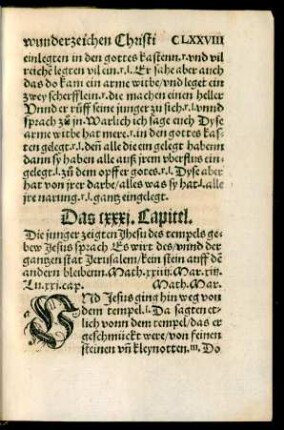 wunderzeichen Christi CLXXVIII
einlegten in den gottes kastenn.r.vnd vil
reichē legten vil ein.r.l.Er sahe aber auch
das do kam ein arme witbe/vnd leget ein
zwey scherfflenn.r.die machen einen heller
Vnnd er rüfft seine junger zu sich.l.vnnd
sprach zů jn.Warlich ich sage euch Dyse
arme witbe hat mere.r.in den gottes kas-
ten gelegt.l.dēn alle die ein gelegt habenn
dann sy haben alle auß jrem vberflus ein-
gelegt.l.zů dem opffer gotes.r.l.Dyse aber
hat von jrer darbe/alles was sy hat.l.alle
jre narung.r.l.gantz eingelegt.
Das cxxxj. Capitel.
Die junger zeigten Jhesu des tempels ge-
bew Jesus sprach Es wirt des/vnnd der
gantzen stat Jerusalem/kein stein auff dē
andern bleibenn.Math.xxiiij.Mar.xiij.
Lu.xxj.cap. Math.Mar.
VNd Jesus ging hin weg von
dem tempel.l.Da sagten et-
lich vonn dem tempel/das er
geschmückt were/von feinen
steinen vñ kleynotten.m.Do